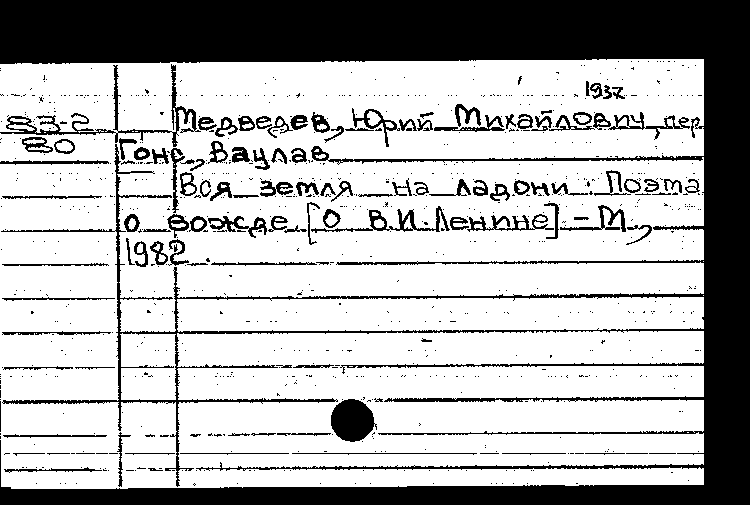 1937
83-2 Медведев, Юрий Михайлович, пер
80 Гонс, Вацлав
Вся земля на ладони: Поэма
о вожде [О В.И. Ленине] - М.,
1982.